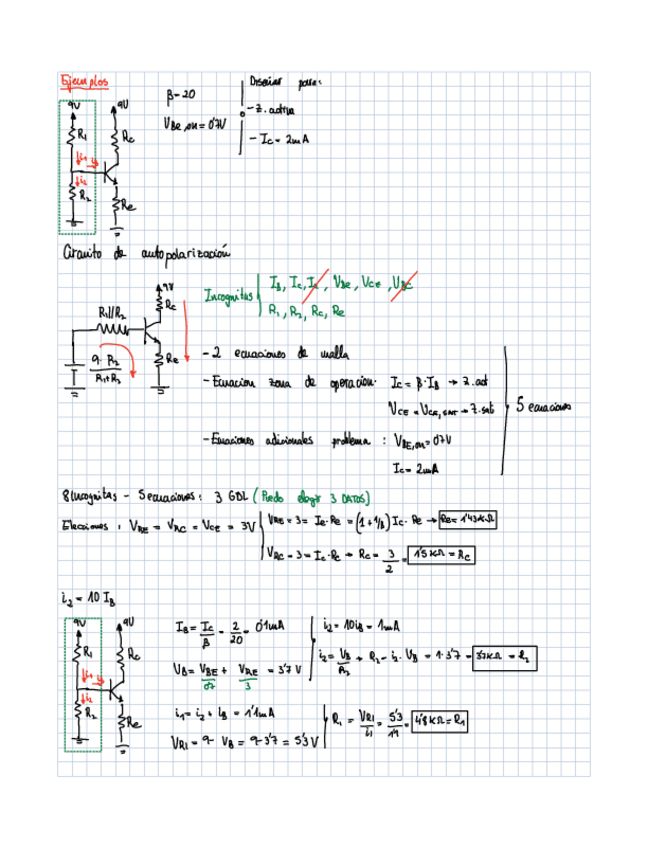 Ejemplos
9V 9V
R1 Rc
i1 iB
i2
R2 Re
β=20
VBE,on = 0'7V
Diseñar para:
- z. activa
- Ic = 2mA
Circuito de autopolarización
9V
Rc
R1//R2
Re
9·R2
R1+R2
Incognitas IB, Ic, IE, VBE, VCE, VBC
R1, R2, Rc, Re
- 2 ecuaciones de malla
- Ecuacion zona de operacion· Ic = β·IB → z.act
VCE = VCE,sat → z.sat
5 ecuaciones
- Ecuaciones adicionales problema : VBE,on = 0'7V
Ic = 2mA
8 Incognitas - 5 ecuaciones: 3 GDL (Puedo elegir 3 DATOS)
Elecciones : VRE = VRC = VCE = 3V
VRE = 3 = Ie·Re = (1+1/β) Ic·Re → Re = 1'43KΩ
VRC = 3 = Ic·Rc → Rc = 3/2 = 1'5 KΩ = Rc
i2 = 10 IB
9V 9V
R1 Rc
i1 iB
i2
R2 Re
IB = Ic/β = 2/20 = 0'1mA
VB = VBE + VRE = 3'7 V
0'7 3
i2 = 10iB = 1mA
i2 = VB/R2 → R2 = i2·VB = 1·3'7 = 3'7KΩ = R2
i1 = i2 + iB = 1'1mA
VR1 = 9 - VB = 9-3'7 = 5'3V
R1 = VR1/i1 = 5'3/1'1 = 4'8KΩ = R1